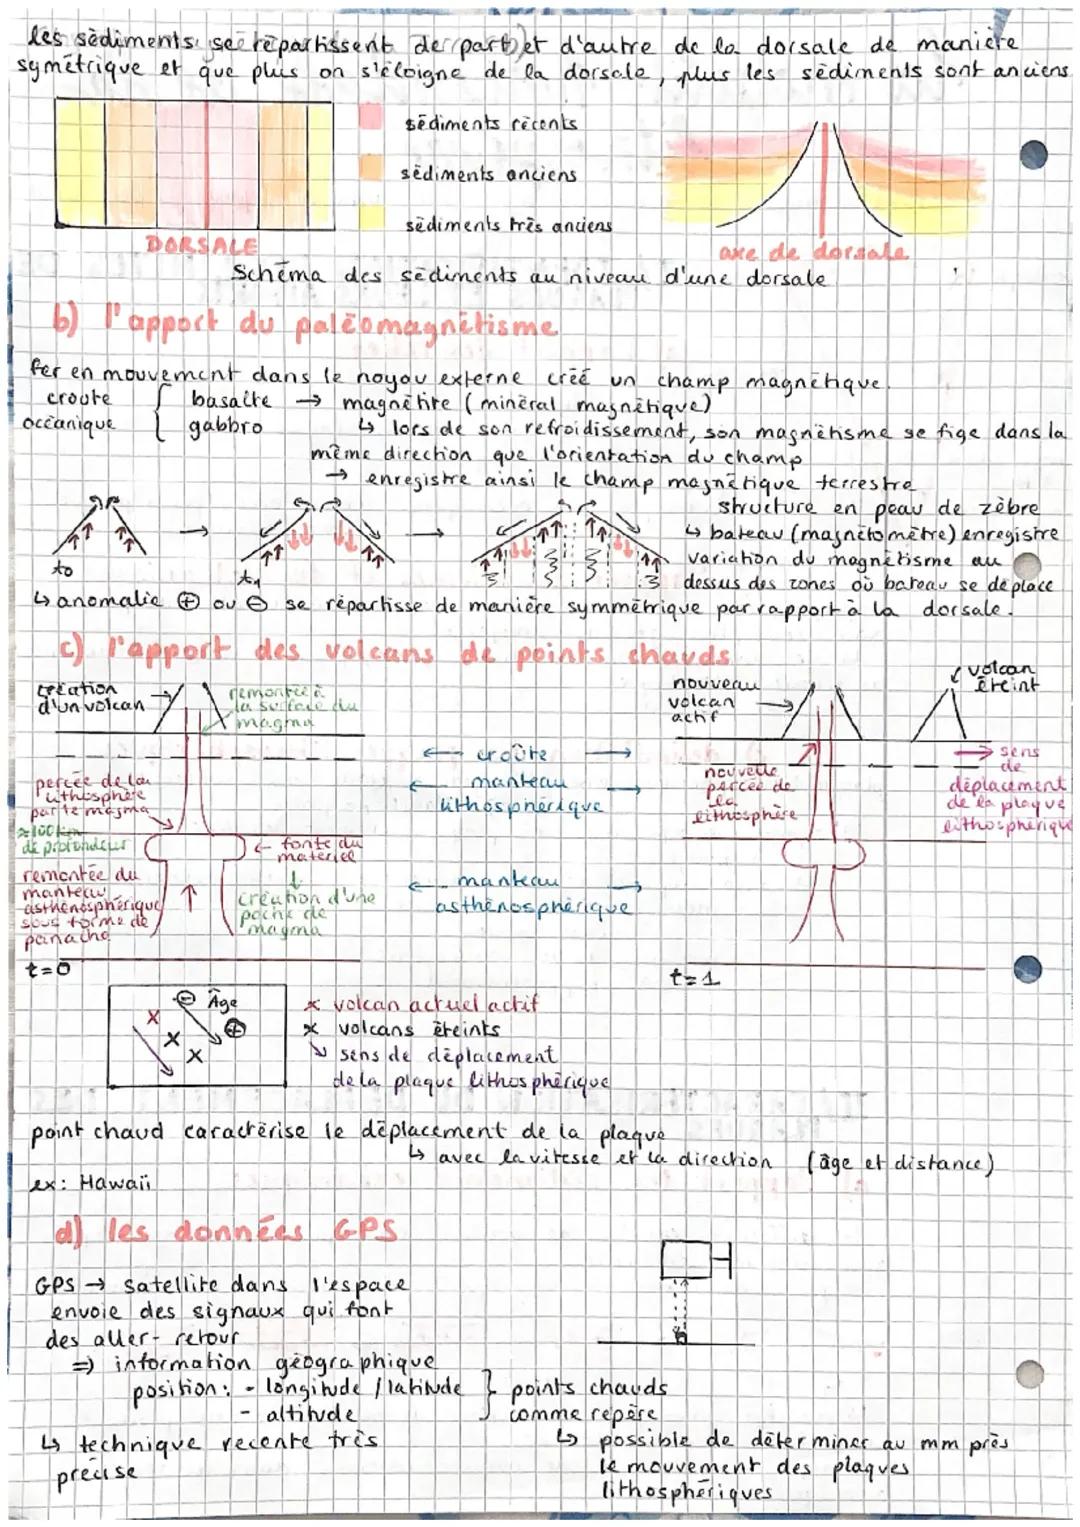 les sédiments se répartissent de part et d'autre de la dorsale de manière
symétrique et que plus on s'éloigne de la dorsale, plus les sédiments sont anciens.
sédiments récents
sédiments anciens
sédiments très anciens
DORSALE
axe de dorsale
Schéma des sédiments au niveau d'une dorsale
b) l'apport du paléomagnétisme
fer en mouvement dans le noyau externe créé un champ magnétique.
croûte océanique { basalte gabbro → magnétite (minéral magnétique)
↳ lors de son refroidissement, son magnétisme se fige dans la
même direction que l'orientation du champ
→ enregistre ainsi le champ magnétique terrestre
structure en peau de zèbre
↳ bateau (magnétomètre) enregistre
variation du magnétisme au
dessus des zones où bateau se déplace
t0
t1
↳ anomalie ⊕ ou ⊖ se répartisse de manière symmétrique par rapport à la dorsale.
c) l'apport des volcans de points chauds
création
d'un volcan
remontée à
la surface du
magma
percée de la
lithosphère
par le magma
≈100 km
de profondeur
remontée du
manteau
asthénosphérique
sous forme de
panache
fonte du
matériel
↓
création d'une
poche de
magma
t=0
← croûte →
← manteau →
lithosphérique
← manteau →
asthénosphérique
nouveau
volcan
actif
volcan
éteint
nouvelle
percée de
la
lithosphère
→ sens
de
déplacement
de la plaque
lithosphérique
t=1
⊖ Âge
⊕
x volcan actuel actif
x volcans éteints
↘ sens de déplacement
de la plaque lithosphérique
point chaud caractérise le déplacement de la plaque
↳ avec la vitesse et la direction (âge et distance)
ex: Hawaii
d) les données GPS
GPS → satellite dans l'espace
envoie des signaux qui font
des aller-retour
⇒ information géographique
position: - longitude / latitude
- altitude
} points chauds
comme repère
↳ technique recente très
précise
↳ possible de déterminer au mm près
le mouvement des plaques
lithosphériques